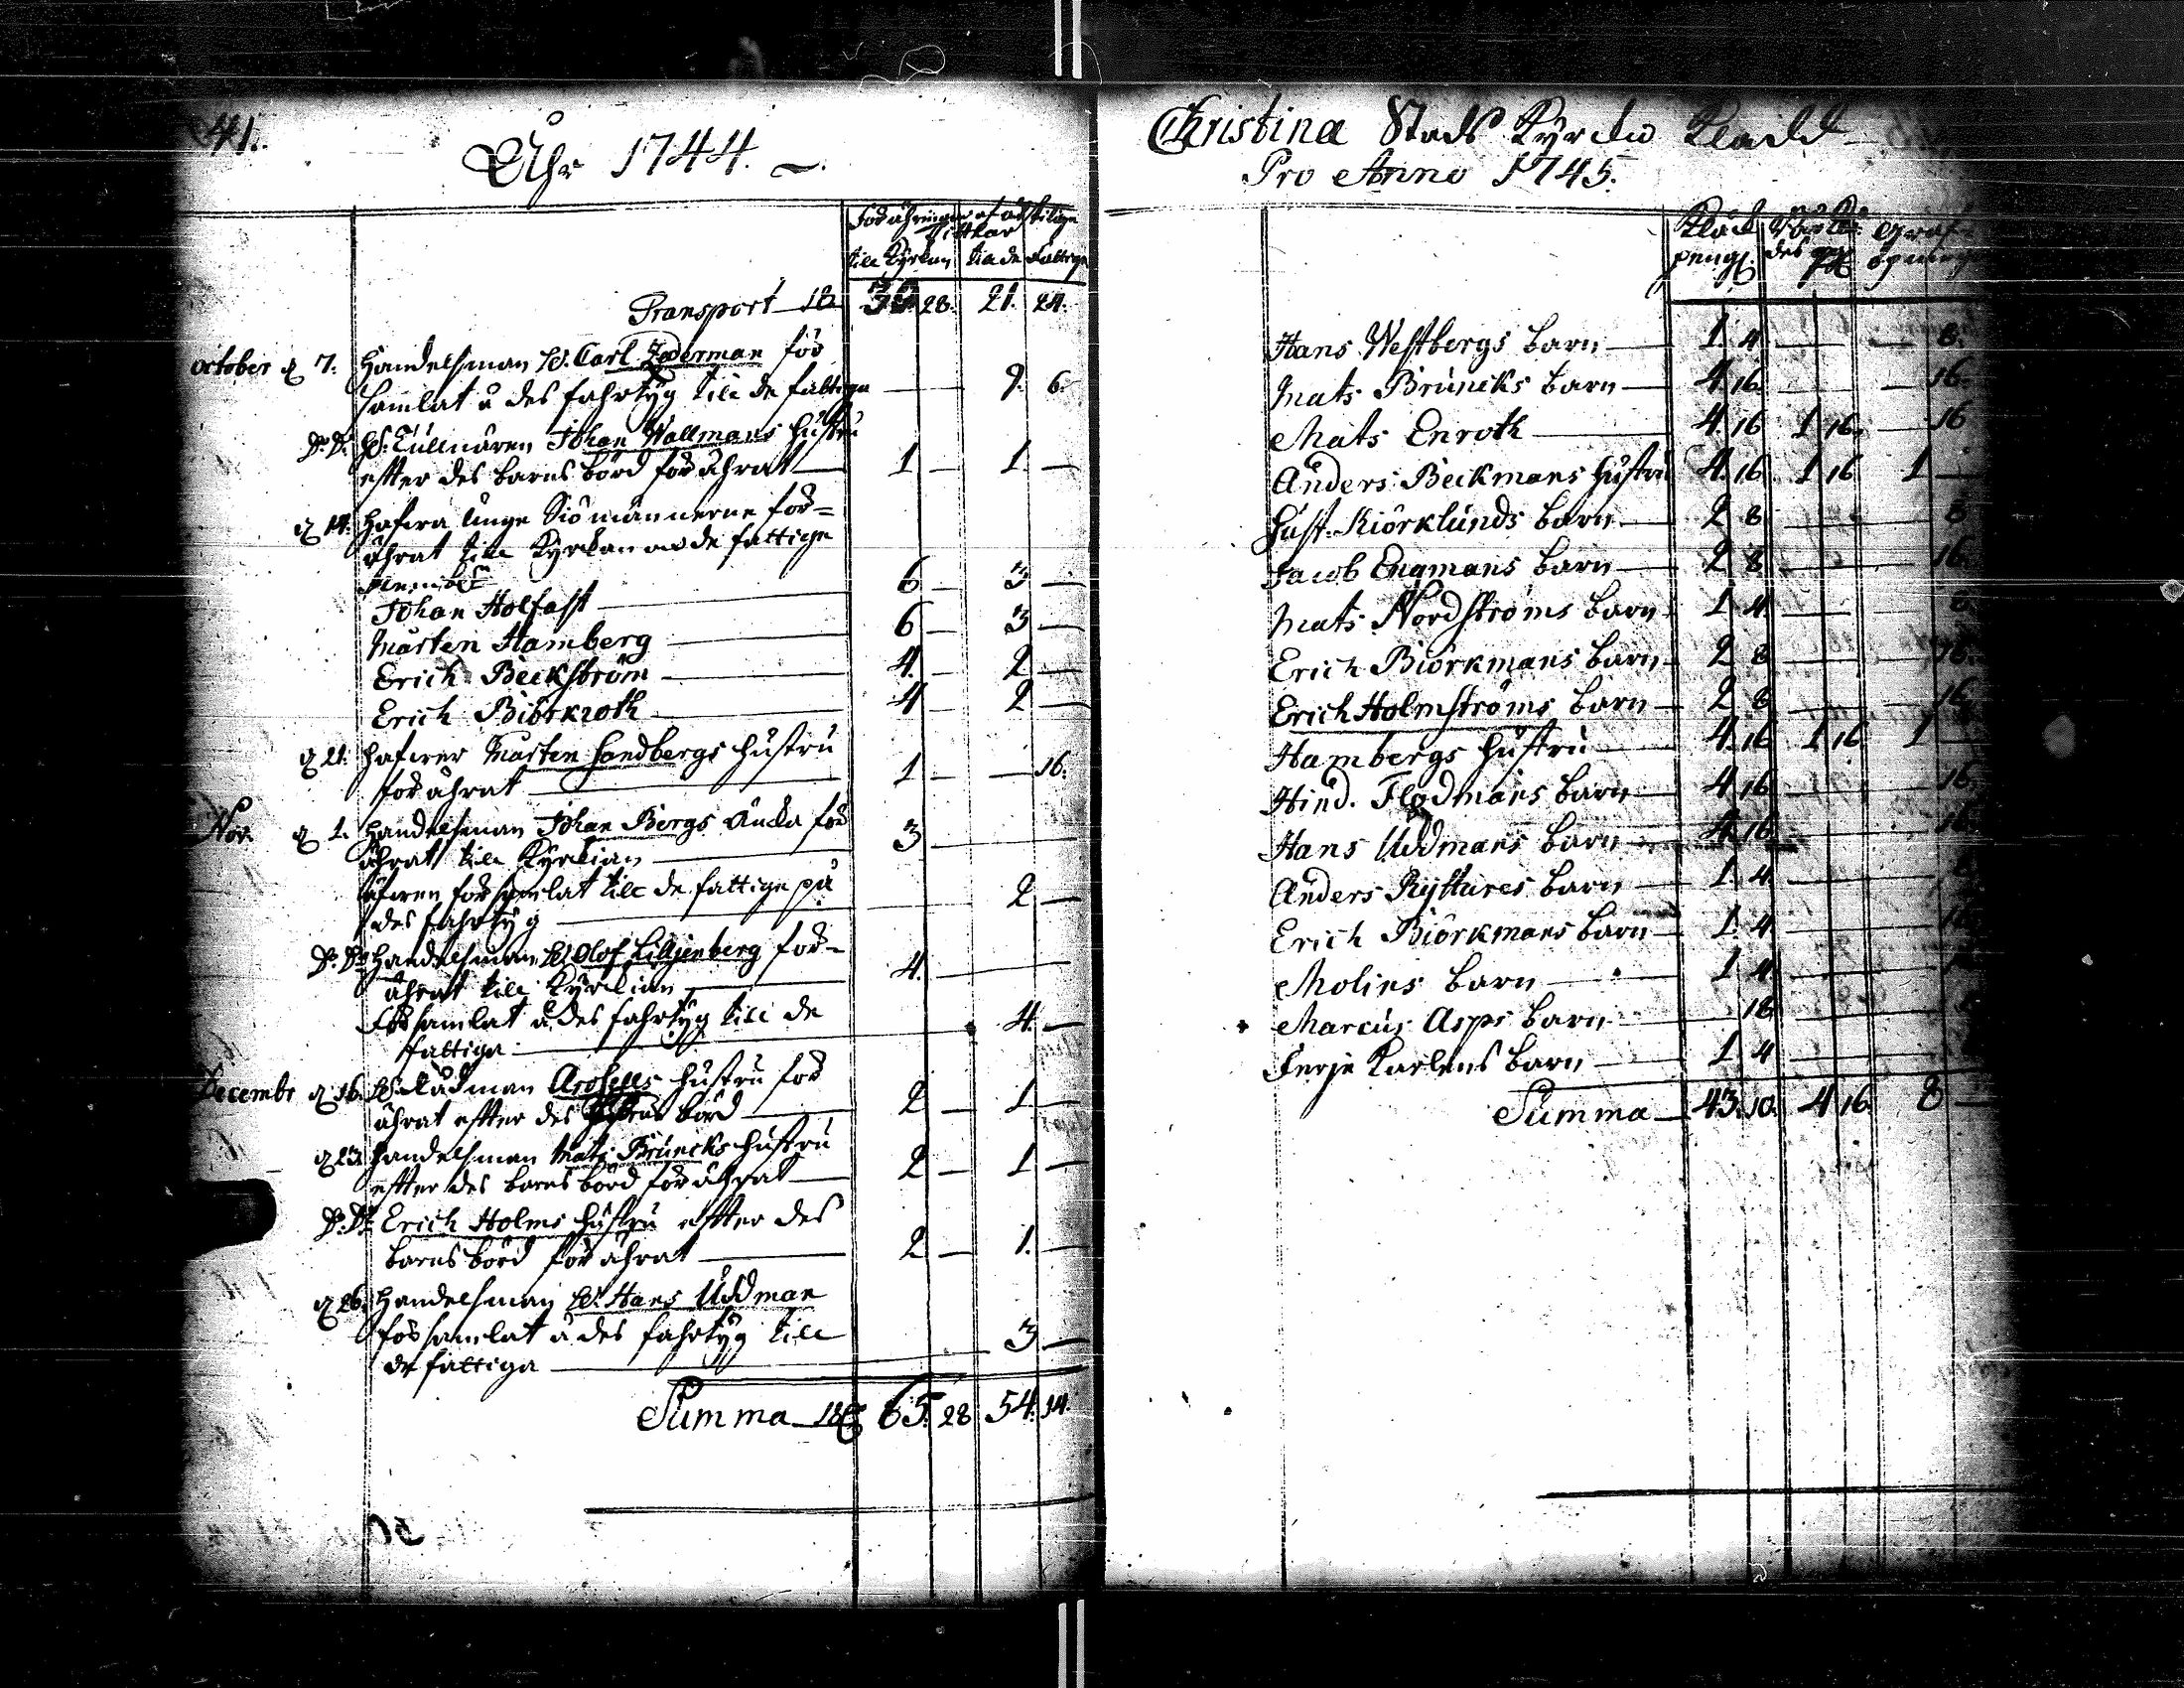 41.
Åhr 1744.
Förähringar af åthskilige
till Kyrkan till de Fattige
Transport 28. 21. 24.
October d 7. Handelsman H. Carl Zederman för
samlat å des fahrtyg till de fattiga 9. 6.
Do Do H. Tullnären Johan Wallmans hustru
efter des barns börd förährat 1 — 1 —
d 14. Hafwa unge Siömännerne för=
ährat till Kyrkan och de fattige
Johan Holfast 6 — 3 —
Mårten Hamberg 6 — 3 —
Erich Beckström 4 — 2 —
Erich Biörkroth 4 — 2 —
d 21. hafwer Mårten Sandbergs hustru
förährat 1 — — 16.
Nov. d 1. Handelsman Johan Bergs Äncka för
ährat till Kyrkian 3 —
äfwen församlat till de fattige på
des fahrtyg 2 —
Do Do Handelsman H. Olof Lilljenberg för=
ährat till Kyrkian 4.
Församlat å des fahrtyg till de
fattiga 4. —
Decembr d 16. H. Rådman Arosells hustru för
ährat efter des börd 2 — 1 —
d 23. Handelsman Mats Bruncks hustru
efter des barns börd förährat 2 — 1 —
Do Do Erich Holms hustru efter des
barns börd förährat 2 — 1. —
d 26. Handelsman H. Hans Uddman
församlat å des fahrtyg till
de fattiga 3 —
Summa 65. 28 54. 14.
Christinæ Stads Kyrckio
Pro Anno 1745.
Hans Westbergs barn 1 4 8.
Mats Bruncks barn 4 16 16.
Mats Enroth 4. 16 1 16. 16
Anders Beckmans hustru 4. 16 1 16 1 —
Hust. Kiörklunds barn 2 8 8
Jacob Engmans barn 2 8 16.
Mats Nordströms barn 1 4. 8
Erich Biörkmans barn 2 8 16.
Erich Holmströms barn 2 8 16
Hambergs hustru 4. 16 1 16 1
Hind. Flodmans barn 4 16 16.
Hans Uddmans barn 4. 16 16
Anders Ryttares barn 1. 4
Erich Biörkmans barn 1. 4
Molins barn 1 4
Marcus Asps barn 18
Karlens barn 1 4
Summa 43. 10. 4 16. 8 —